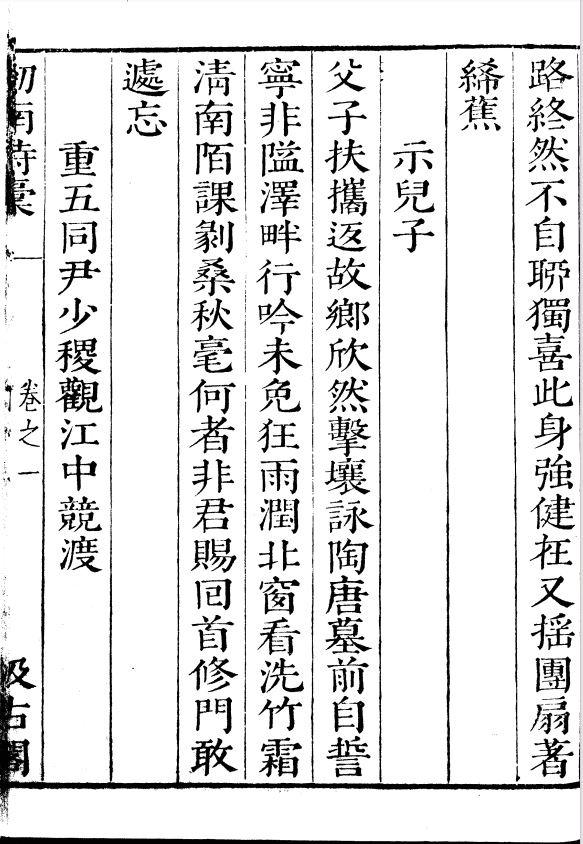 路終然不自聊獨喜此身強健在又揺團扇著
絺蕉
示兒子
父子扶攜返故鄉欣然擊壤詠陶唐墓前自誓
寧非隘澤畔行吟未免狂雨潤北窗看洗竹霜
清南陌課剝桑秋毫何者非君賜囘首修門敢
遽忘
重五同尹少稷觀江中競渡
劎南詩稾
卷之一
汲古閣